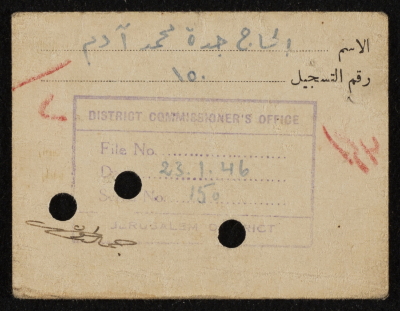 الاسم الحاج جدة محمد آدم
رقم التسجيل ١٥٠
DISTRICT COMMISSIONER'S OFFICE
File No.
D 23.1.46
Se No. 150
JERUSALEM DISTRICT